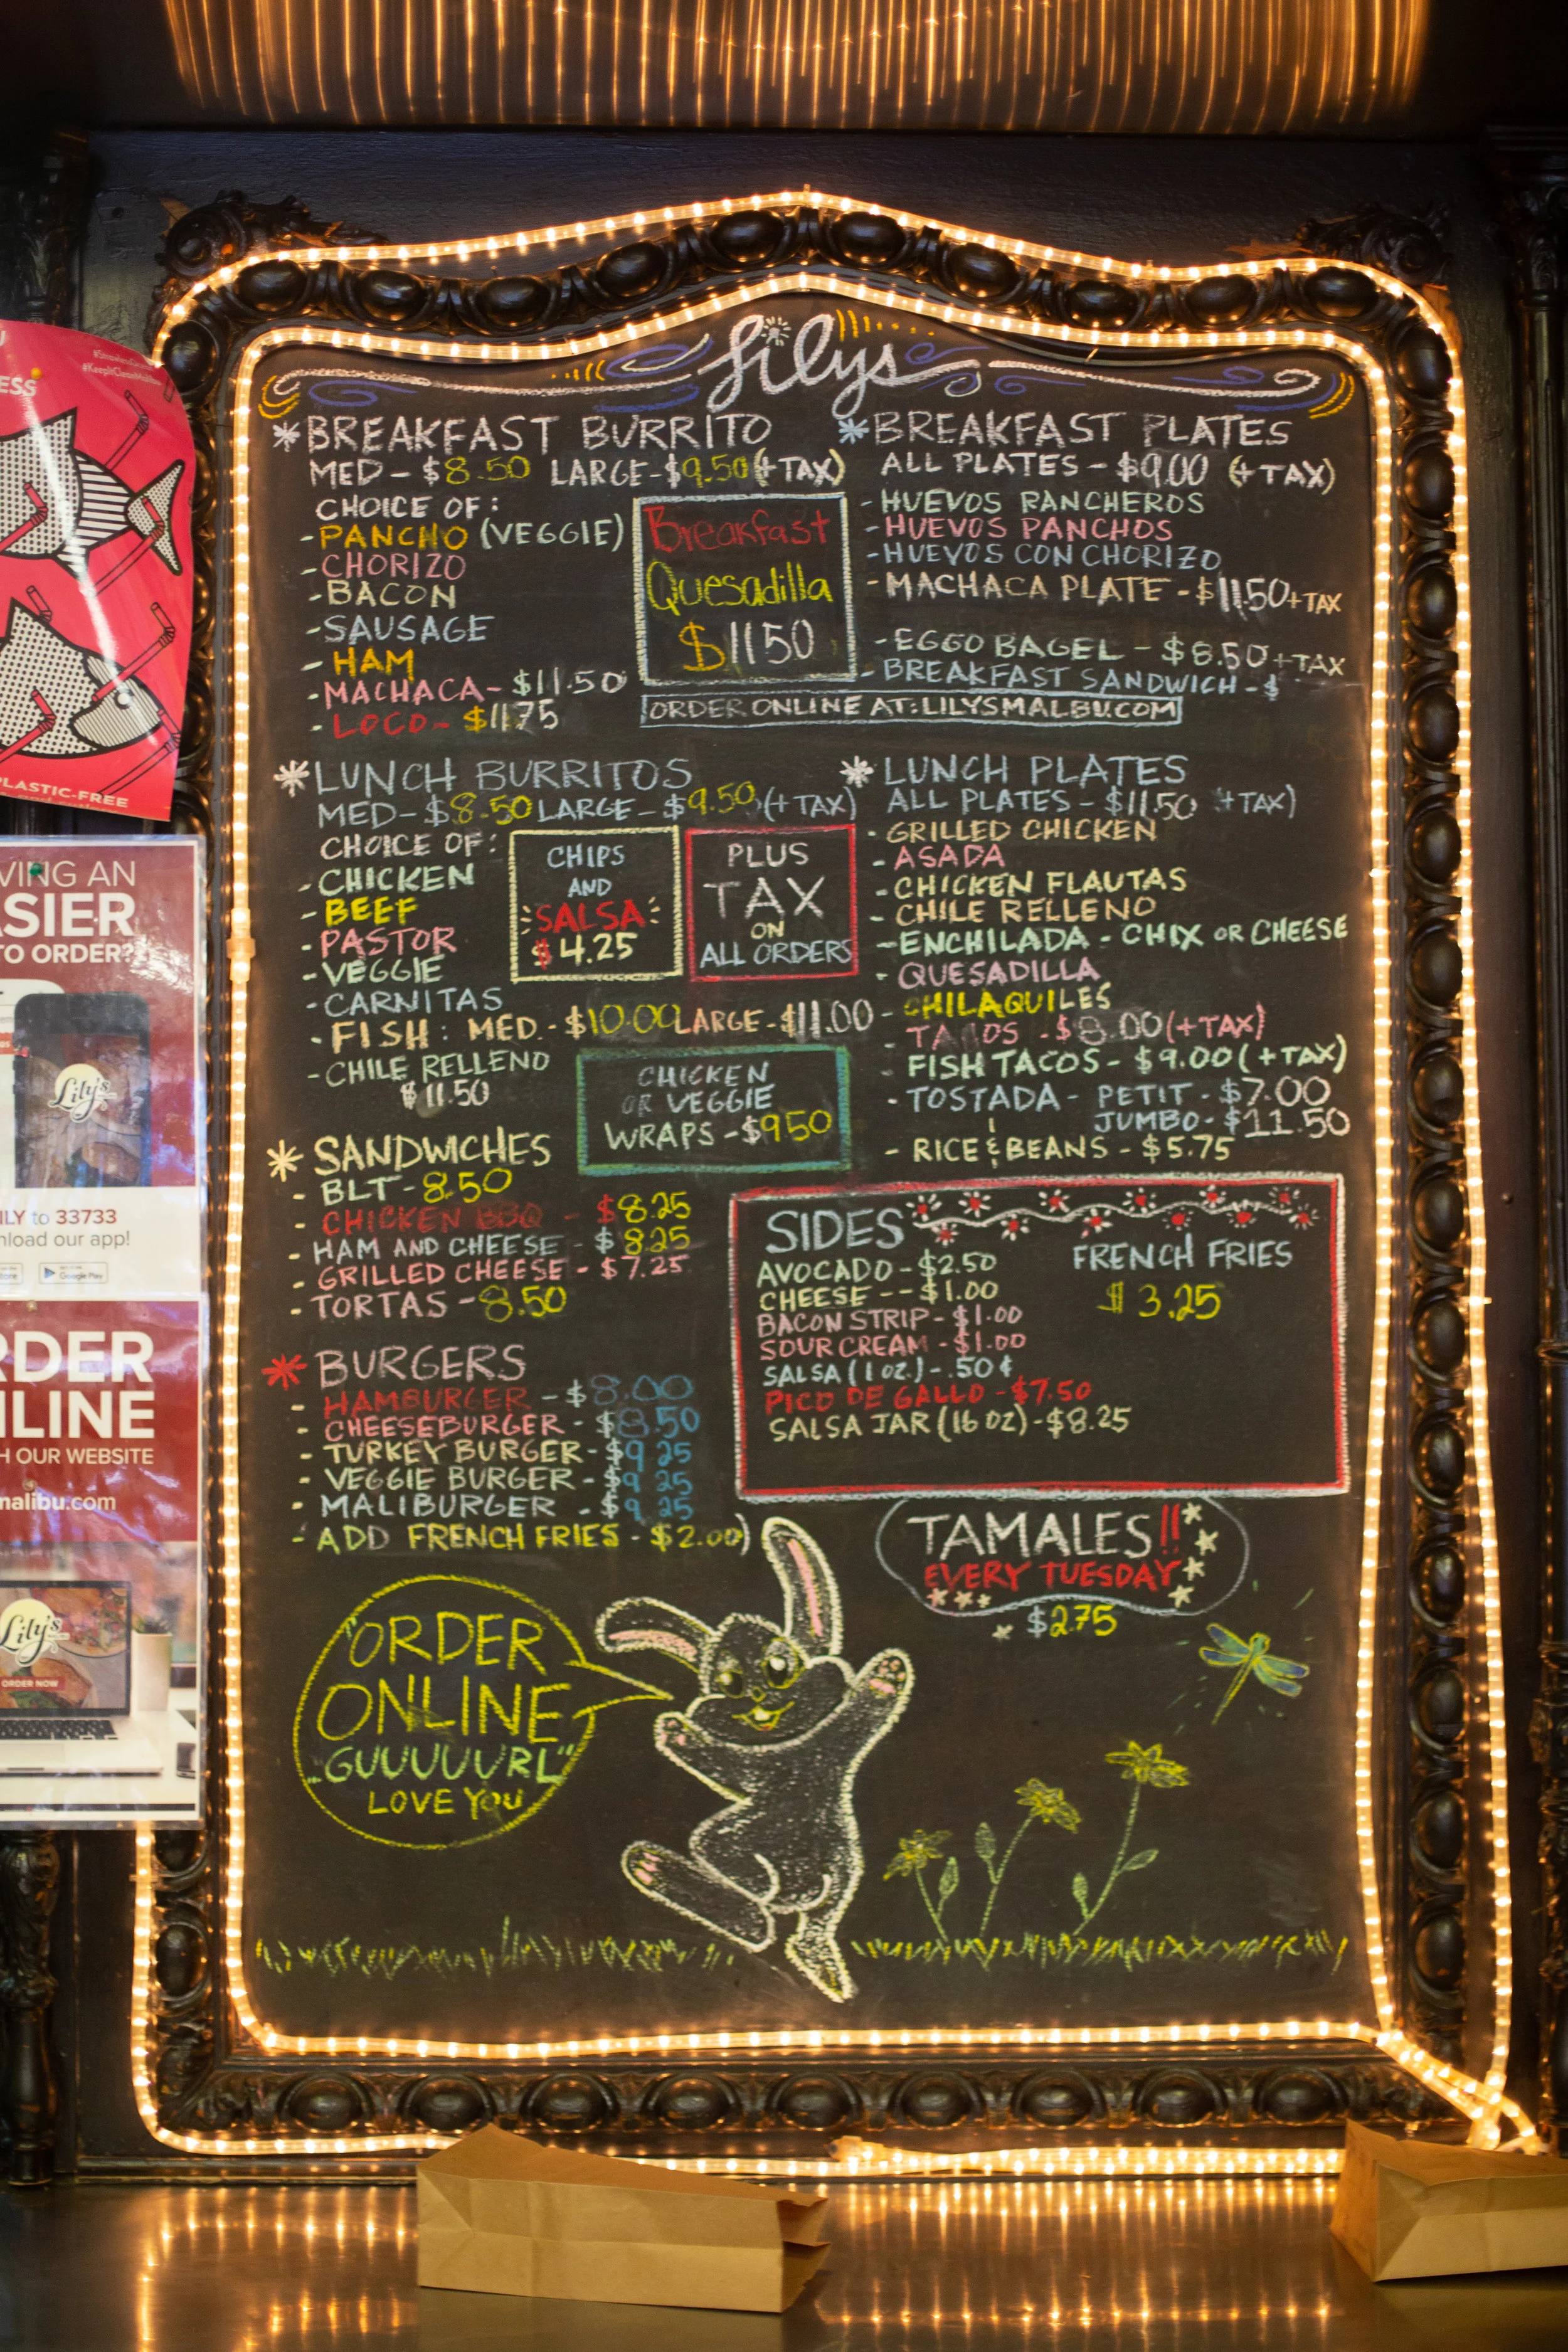 #KeepItCleanMalibu
ESS
PLASTIC-FREE
VING AN
ASIER
TO ORDER?
Lily's
ILY to 33733
nload our app!
Google Play
RDER
NLINE
H OUR WEBSITE
malibu.com
Lily's
ORDER NOW
Lilys
*BREAKFAST BURRITO
MED - $8.50 LARGE - $9.50 (+TAX)
CHOICE OF:
- PANCHO (VEGGIE)
- CHORIZO
- BACON
- SAUSAGE
- HAM
- MACHACA - $11.50
- LOCO - $11.75
Breakfast
Quesadilla
$11.50
*BREAKFAST PLATES
ALL PLATES - $9.00 (+TAX)
- HUEVOS RANCHEROS
- HUEVOS PANCHOS
- HUEVOS CON CHORIZO
- MACHACA PLATE - $11.50 +TAX
- EGGO BAGEL - $8.50 +TAX
- BREAKFAST SANDWICH - $
ORDER ONLINE AT: LILYSMALBU.COM
*LUNCH BURRITOS
MED - $8.50 LARGE - $9.50 (+TAX)
CHOICE OF:
- CHICKEN
- BEEF
- PASTOR
- VEGGIE
- CARNITAS
- FISH: MED. - $10.00 LARGE - $11.00
- CHILE RELLENO
$11.50
CHIPS
AND
SALSA
$4.25
PLUS
TAX
ON
ALL ORDERS
CHICKEN
OR VEGGIE
WRAPS - $9.50
*LUNCH PLATES
ALL PLATES - $11.50 +TAX)
- GRILLED CHICKEN
- ASADA
- CHICKEN FLAUTAS
- CHILE RELLENO
- ENCHILADA - CHIX OR CHEESE
- QUESADILLA
- CHILAQUILES
- TACOS - $8.00 (+TAX)
- FISH TACOS - $9.00 (+TAX)
- TOSTADA - PETIT - $7.00
JUMBO - $11.50
- RICE & BEANS - $5.75
*SANDWICHES
- BLT - 8.50
- CHICKEN BBQ - $8.25
- HAM AND CHEESE - $8.25
- GRILLED CHEESE - $7.25
- TORTAS - 8.50
*BURGERS
- HAMBURGER - $8.00
- CHEESEBURGER - $8.50
- TURKEY BURGER - $9.25
- VEGGIE BURGER - $9.25
- MALIBURGER - $9.25
- ADD FRENCH FRIES - $2.00)
SIDES
AVOCADO - $2.50
CHEESE -- $1.00
BACON STRIP - $1.00
SOUR CREAM - $1.00
SALSA (1 OZ.) - .50¢
PICO DE GALLO - $7.50
SALSA JAR (16 OZ) - $8.25
FRENCH FRIES
$3.25
TAMALES!!
EVERY TUESDAY
$2.75
ORDER
ONLINE
"GUUUUURL"
LOVE YOU